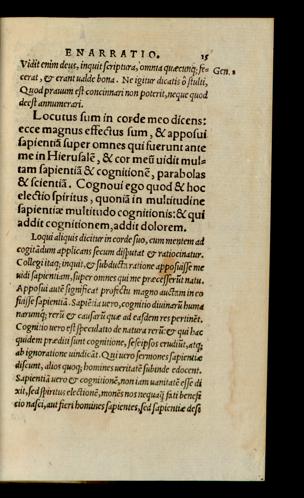 ENARRATIO. 15
Vidit enim deus, inquit scriptura, omnia quæcunq; fe= Gen. 1
cerat, & erant ualde bona. Ne igitur dicatis ô stulti,
Quod prauum est concinnari non poterit, neque quod
deest annumerari.
Locutus sum in corde meo dicens:
ecce magnus effectus sum, & apposui
sapientiã super omnes qui fuerunt ante
me in Hierusalẽ, & cor meũ uidit mul=
tam sapientiã & cognitionẽ, parabolas
& scientiã. Cognoui ego quod & hoc
electio spiritus, quoniã in multitudine
sapientiæ multitudo cognitionis: & qui
addit cognitionem, addit dolorem.
Loqui aliquis dicitur in corde suo, cum mentem ad
cogitãdum applicans secum disputat & ratiocinatur.
Collegi itaq; inquit, & subducta ratione apposuisse me
uidi sapientiam, super omnes qui me præcesserũt natu.
Apposui autẽ significat profectu magno auctam in eo
fuisse sapientiã. Sapiẽtia uero, cognitio diuinarũ huma
narumq; rerũ & causarũ quæ ad easdem res pertinẽt.
Cognitio uero est speculatio de natura rerũ: & qui hac
quidem præditi sunt cognitione, seseipsos erudiũt, atq;
ab ignoratione uindicãt. Qui uero sermones sapientiæ
discunt, alios quoq; homines ueritatẽ subinde edocent.
Sapientiã uero & cognitionẽ, non iam uanitatẽ esse di
xit, sed spiritus electionẽ, monẽs nos nequaq̃ fati benefi
cio nasci, aut fieri homines sapientes, sed sapientiæ desi